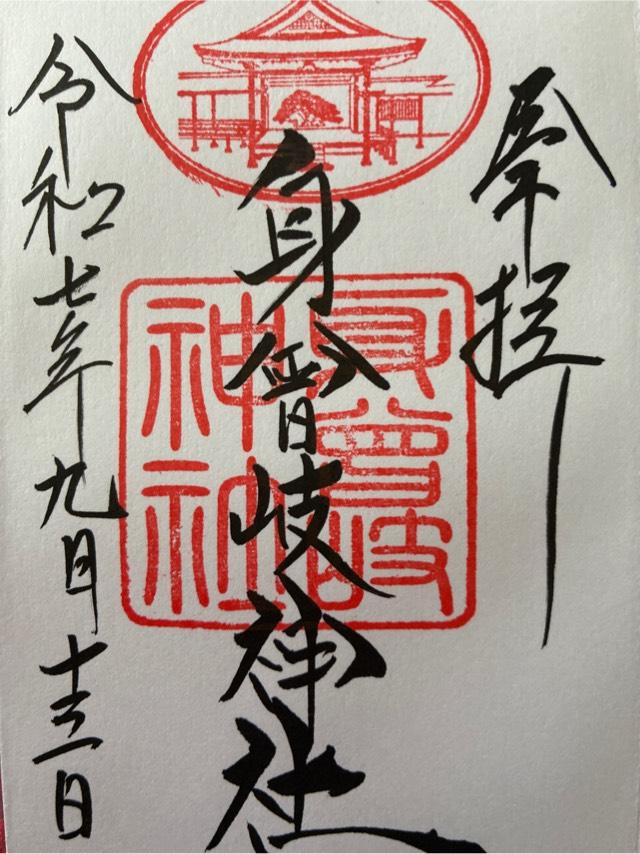 奉拝
身曾岐神社
令和七年九月十三日
身曾岐
神社